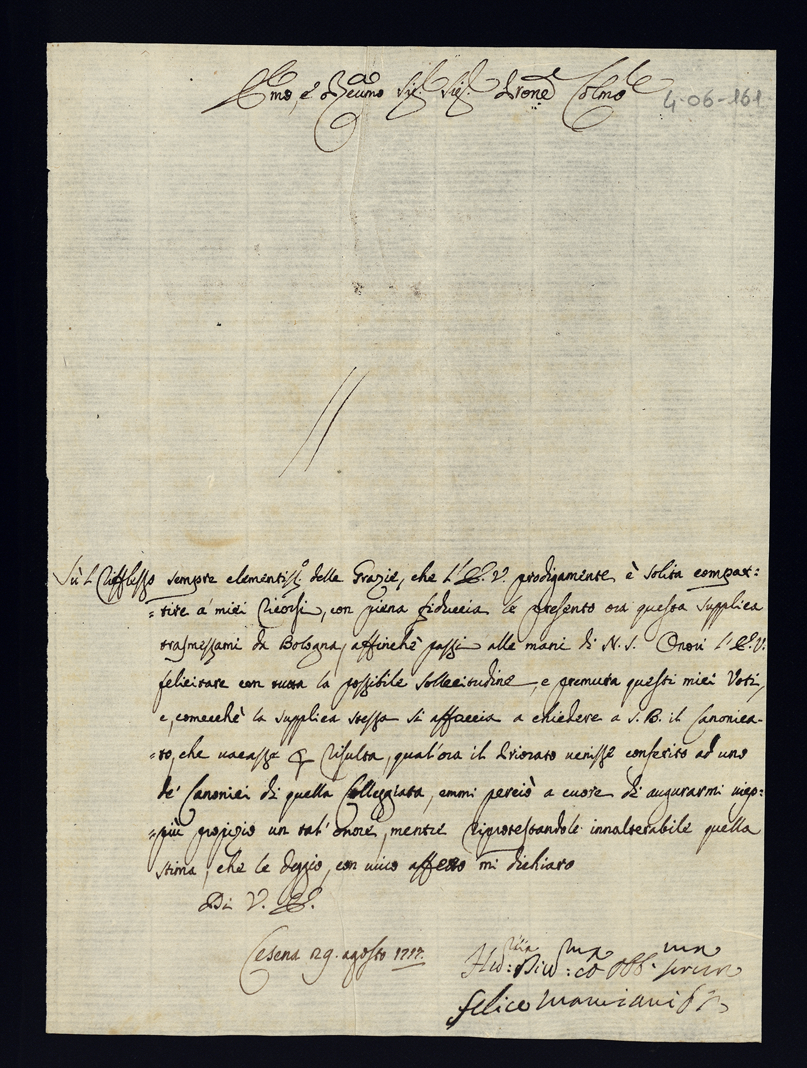 Emo, e Rmo Sig. Sig. Prone Colmo
4-06-161
Sù l riflesso sempre clementissmo delle Grazie, che l'E. V. prodigamente è solita compar=
=tire a' miei ricorsi, con piena fiduccia le presento ora questa supplica
trasmessami da Bologna, affinchè passi alle mani di N. S. Onori l'E. V.
felicitare con tutta la possibile sollecitudine, e premura questi miei Voti,
e, comecchè la supplica stessa si affaccia a chiedere a S. B. il Canonica-
=to, che vacasse p risulta, qual'ora il Priorato venisse conferito ad uno
de' Canonici di quella Collegiata, emmi perciò a cuore di augurarmi viep=
=più propizio un tal' onore, mentre riprotestandole innalterabile quella
stima, che le deggio, con vivo affetto mi dichiaro
Di V. E.
Cesena 29. agosto 1717.
Felice Marciani